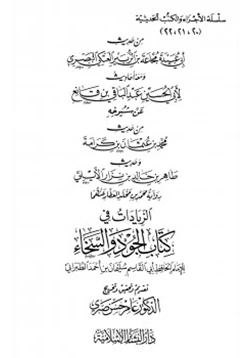 سلسلة الأجزاء والكتب الحديثية
(٢٠، ٢١، ٢٢)
من حديث
أبي عبيدة مجاعة بن الزبير العتكي البصري
ومعه أحاديث
لأبي الحسين عبد الباقي بن قانع
عن شيوخه
من حديث
محمد بن عثمان بن كرامة
وحديث
طاهر بن خالد بن نزار الأيلي
رواية محمد بن مخلد العطار عنهما
الزيادات في
كتاب الجود والسخاء
للإمام الحافظ أبي القاسم سليمان بن أحمد الطبراني
تقديم وتحقيق وتخريج
الدكتور عامر حسن صبري
دار البشائر الإسلامية